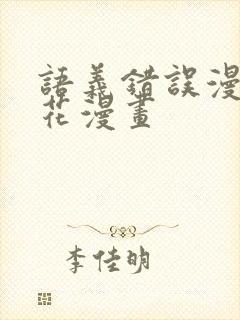 語義錯誤漫
花漫畫
李佳明